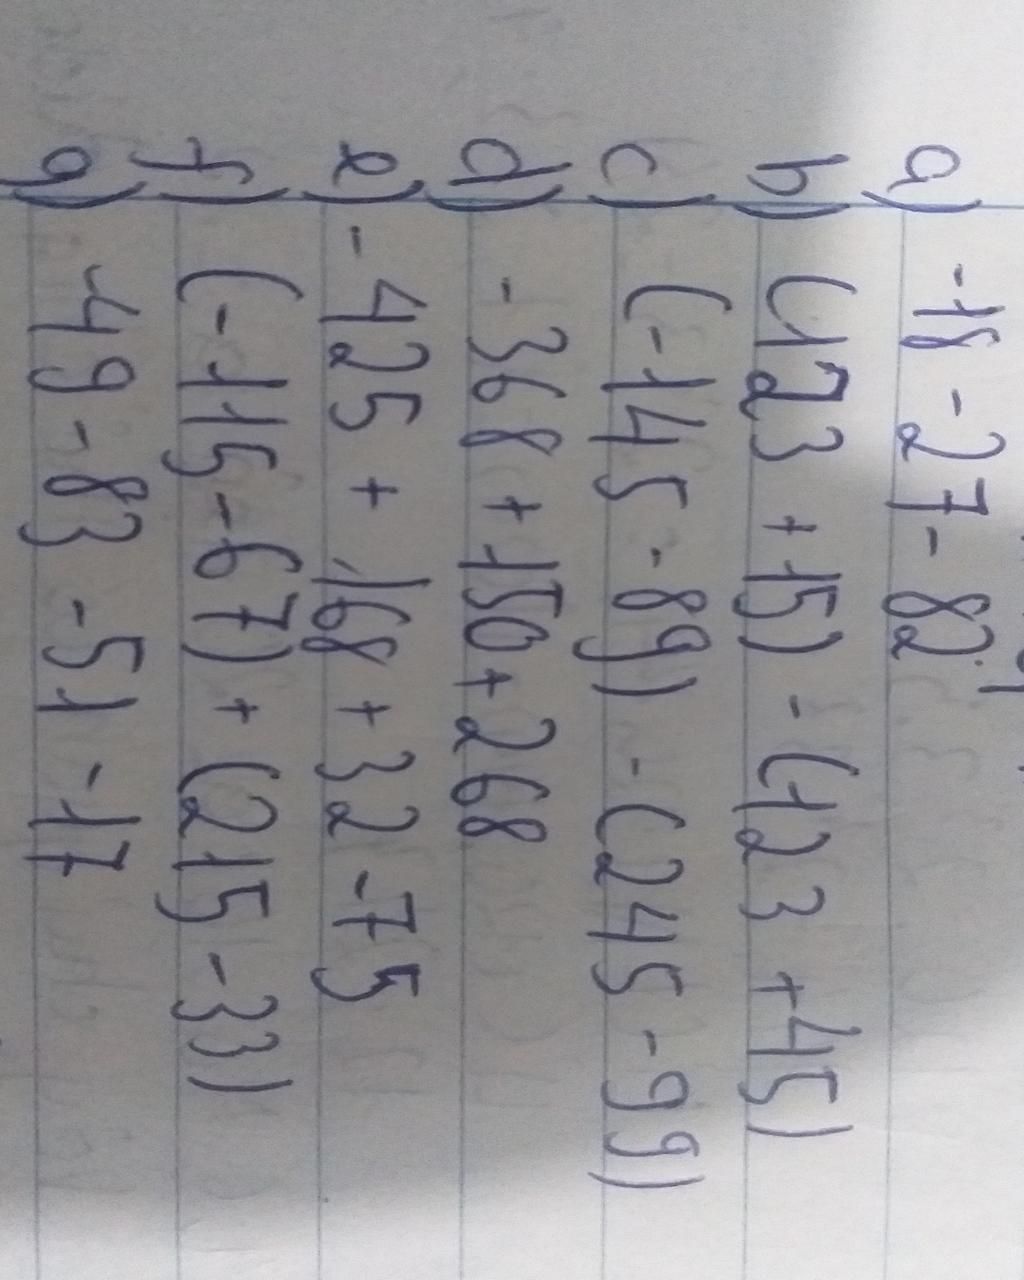 a) -18 - 27 - 82
b) (123 + 15) - (123 + 45)
c) (-145 - 89) - (245 - 99)
d) - 368 + 150 + 268
e) - 425 + 168 + 32 - 75
f) (-115 - 67) + (215 - 33)
g) -49 - 83 - 51 - 17